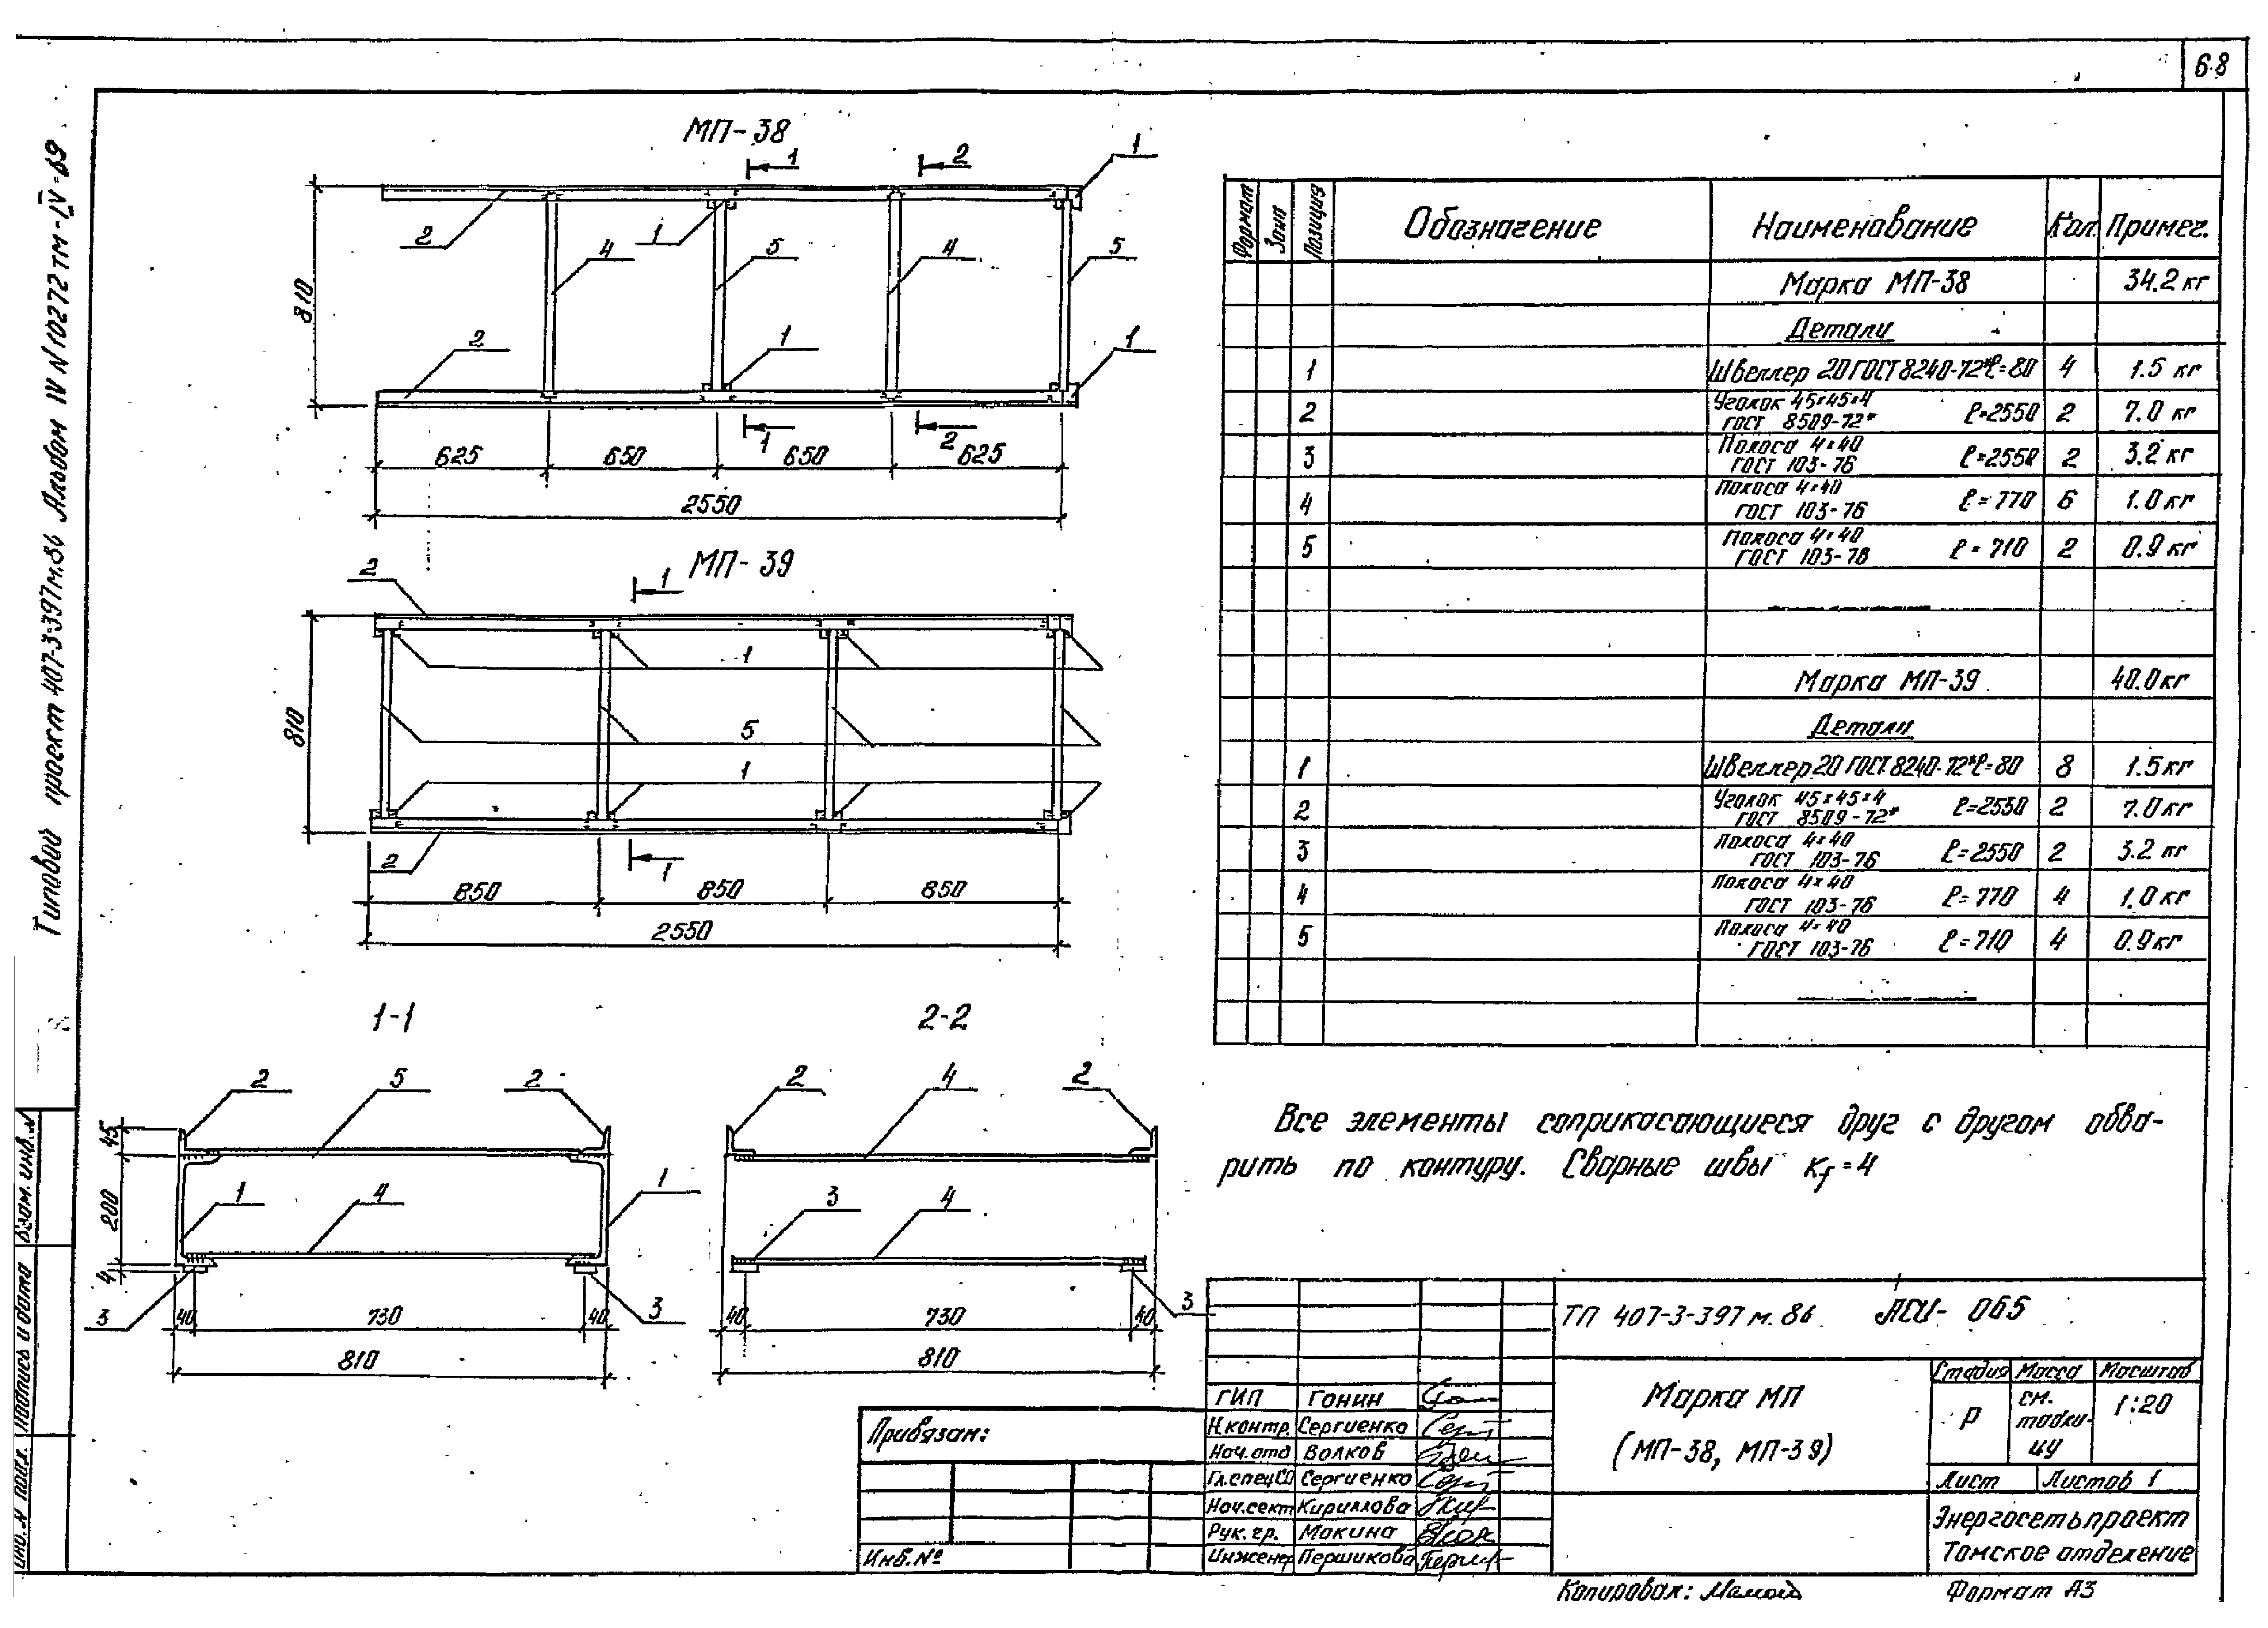 68
Типовой проект 407-3-397м.86 Альбом IV N10272тм-IV-69
МП-38
1 2 1
2 1
4 5 4 5
810
2 1 1
1 2
625 650 650 625
2550
МП-39
2 1
1
810
5
1
2 1
850 850 850
2550
1-1 2-2
2 5 2 2 4 2
45
1 4 1 3 4
200
4
3 40 730 40 3 40 730 40 3
810 810
Формат Зона Позиция Обозначение Наименование Кол. Примеч.
Марка МП-38 34.2 кг
Детали
1 Швеллер 20 ГОСТ 8240-72* ℓ=80 4 1.5 кг
2 Уголок 45×45×4 ГОСТ 8509-72* ℓ=2550 2 7.0 кг
3 Полоса 4×40 ГОСТ 103-76 ℓ=2550 2 3.2 кг
4 Полоса 4×40 ГОСТ 103-76 ℓ=770 6 1.0 кг
5 Полоса 4×40 ГОСТ 103-76 ℓ=710 2 0.9 кг
Марка МП-39 40.0 кг
Детали
1 Швеллер 20 ГОСТ 8240-72* ℓ=80 8 1.5 кг
2 Уголок 45×45×4 ГОСТ 8509-72* ℓ=2550 2 7.0 кг
3 Полоса 4×40 ГОСТ 103-76 ℓ=2550 2 3.2 кг
4 Полоса 4×40 ГОСТ 103-76 ℓ=770 4 1.0 кг
5 Полоса 4×40 ГОСТ 103-76 ℓ=710 4 0.9 кг
Все элементы соприкасающиеся друг с другом обва-
рить по контуру. Сварные швы Kf=4
Взам. инв. N
Подпись и дата
Инв. N подл.
Привязан:
Инв. №
ТП 407-3-397м.86 АСИ-065
ГИП Гонин
Н.контр. Сергиенко
Нач.отд Волков
Гл.спец СО Сергиенко
Нач.сект Кириллова
Рук. гр. Макина
Инженер Першикова
Марка МП
(МП-38, МП-39)
Стадия Масса Масштаб
Р см. табли-цу 1:20
Лист Листов 1
Энергосетьпроект
Томское отделение
Копировал:
Формат А3